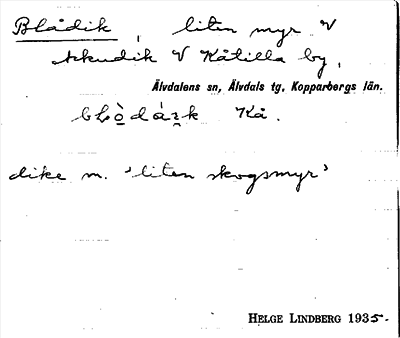 Blådik, liten myr V
V Kåtilla by,
Älvdalens sn, Älvdals tg, Kopparbergs län.
Kå.
dike m. 'liten skogsmyr'
HELGE LINDBERG 1935.